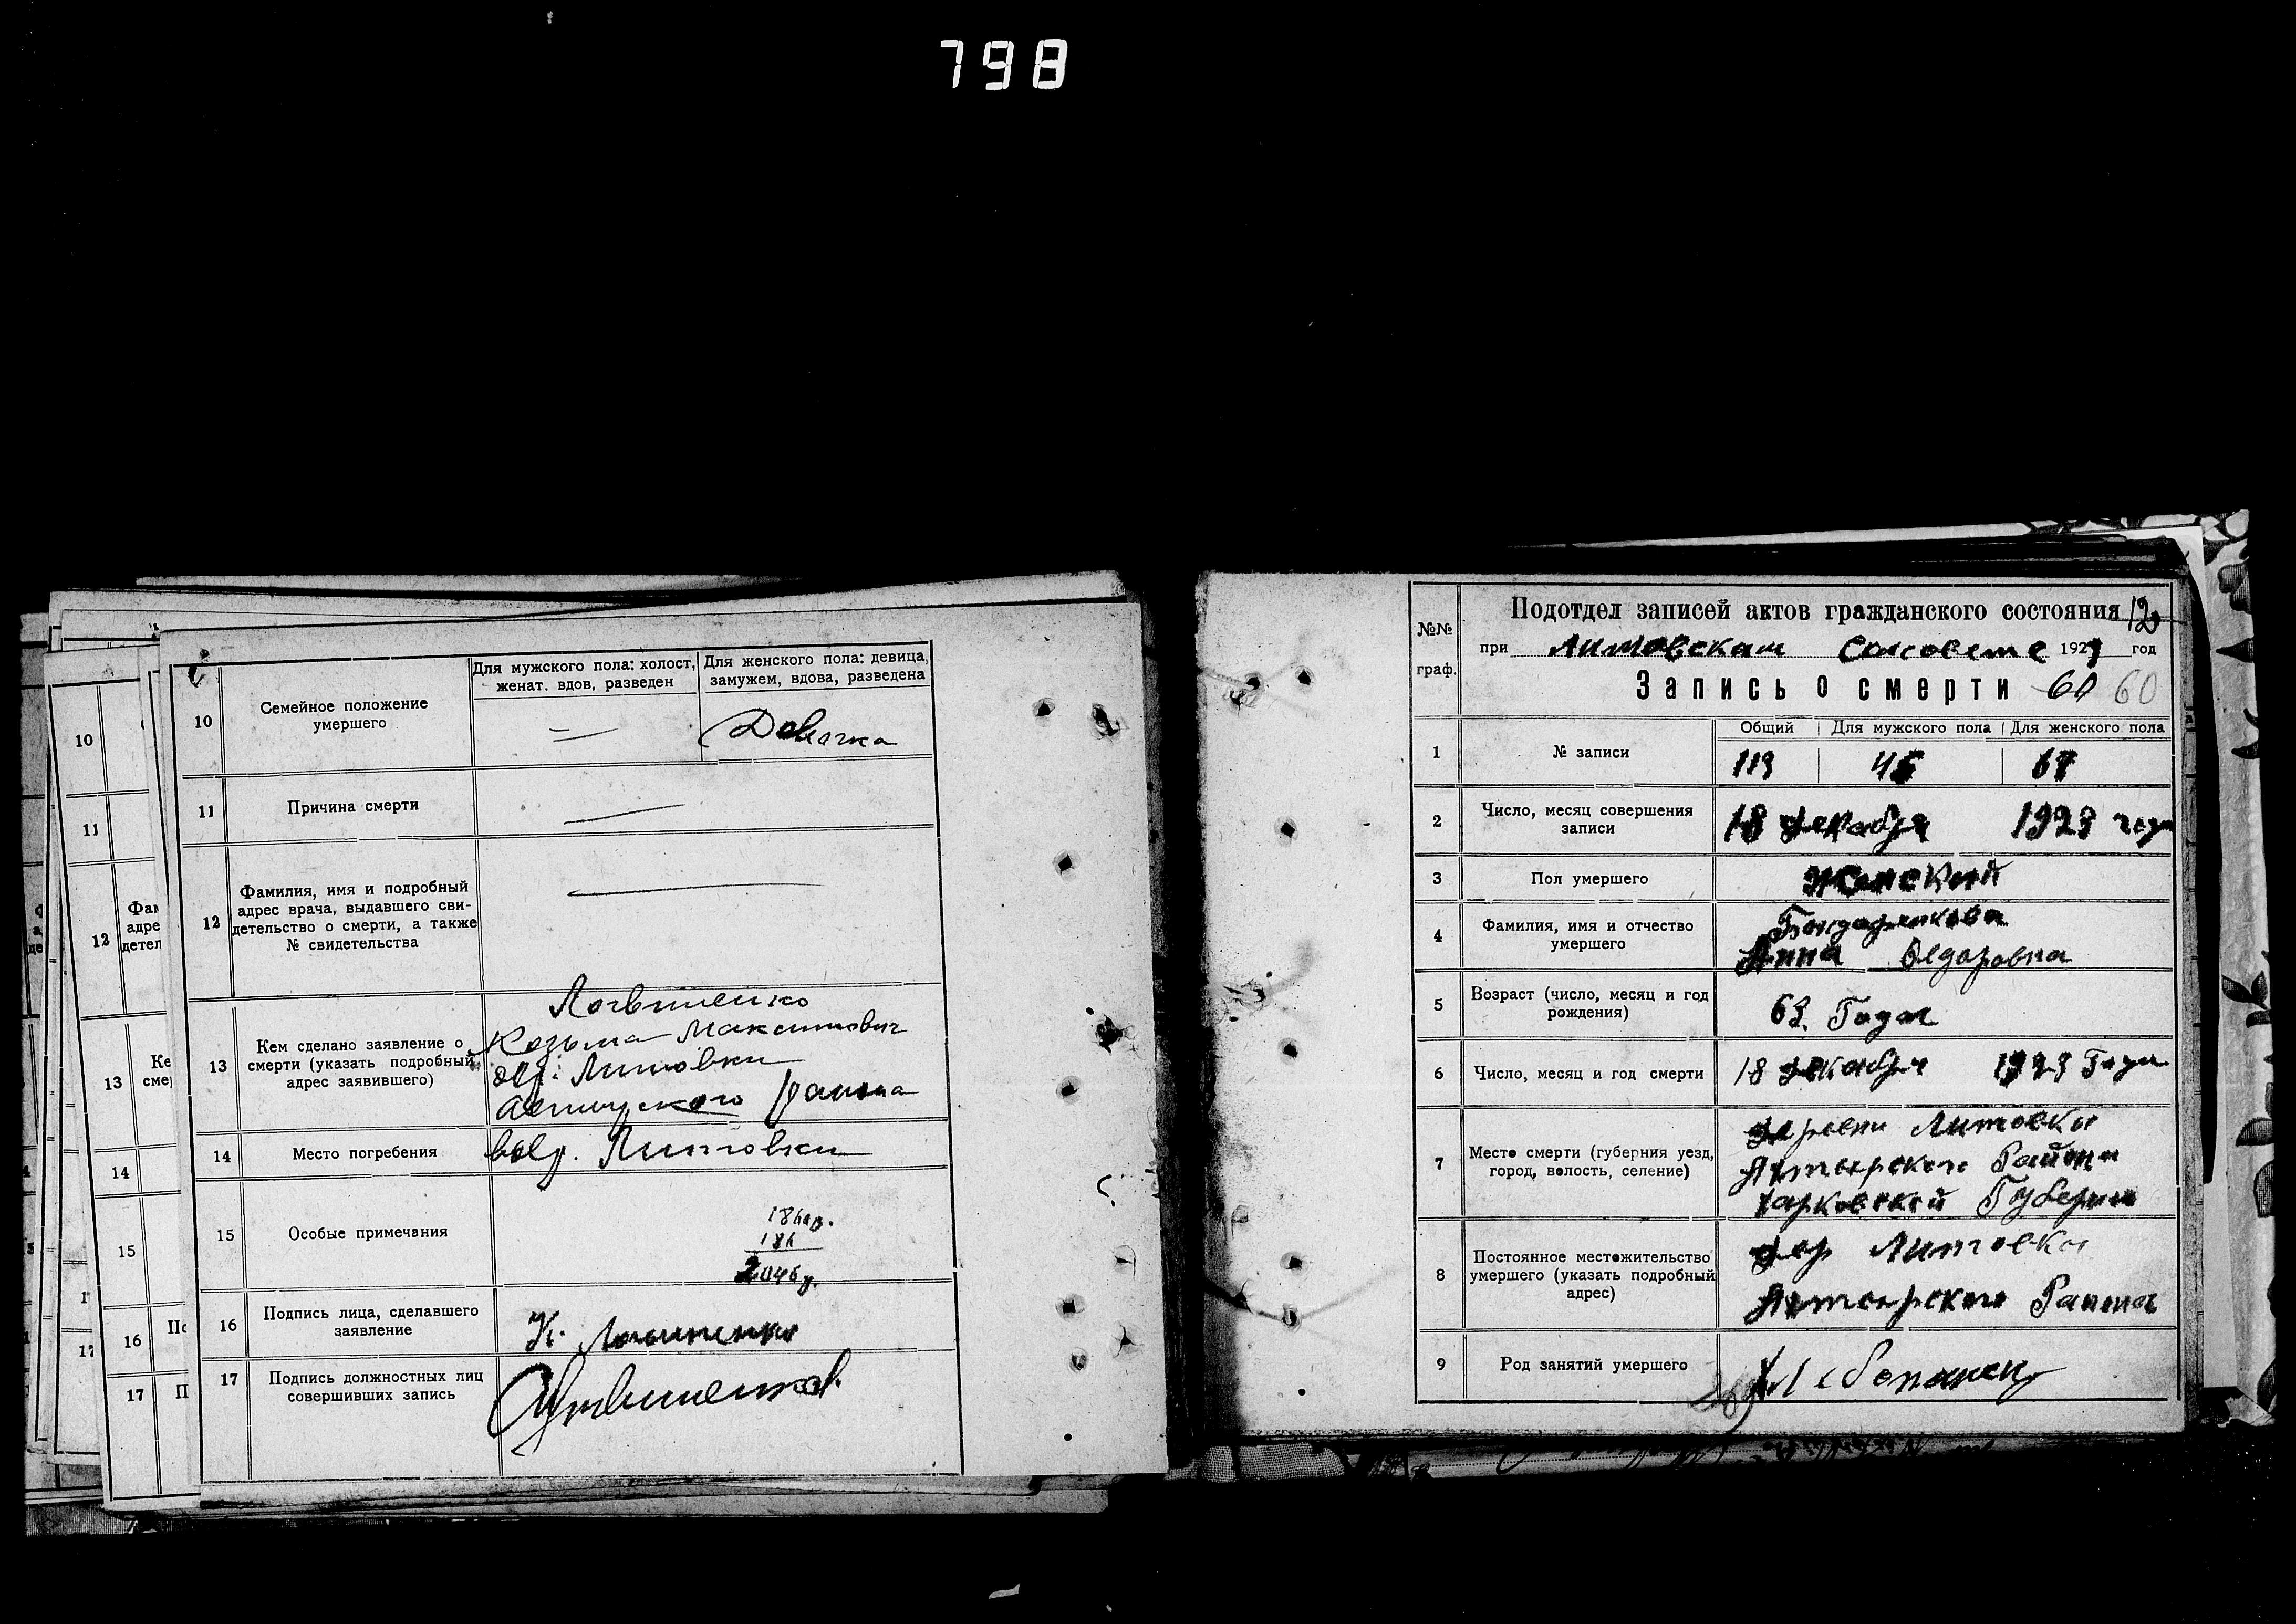 798
10
Семейное положение
умершего
Для мужского пола: холост,
женат. вдов, разведен
Для женского пола: девица,
замужем, вдова, разведена
Девочка
11
Причина смерти
12
Фамилия, имя и подробный
адрес врача, выдавшего сви-
детельство о смерти, а также
№ свидетельства
13
Кем сделано заявление о
смерти (указать подробный
адрес заявившего)
Логвиненко
Козьма Максимович
дер. Литовки
Ахтырского района
14
Место погребения
в дер. Литовки
15
Особые примечания
2046
16
Подпись лица, сделавшего
заявление
К.
17
Подпись должностных лиц
совершивших запись
10
11
12
Фам
адре
детел
13
Ке
смер
14
15
16
17
10
11
12
13
14
15
16
17
№№
граф.
Подотдел записей актов гражданского состояния
при Литовском Сельсовете 1923 год
Запись о смерти 60 60
1
№ записи
Общий
Для мужского пола
Для женского пола
119
45
67
2
Число, месяц совершения
записи
18 декабря 1923 года
3
Пол умершего
Женский
4
Фамилия, имя и отчество
умершего
Бондаренкова
Анна Федоровна
5
Возраст (число, месяц и год
рождения)
63 Года
6
Число, месяц и год смерти
18 декабря 1923 Года
7
Место смерти (губерния уезд,
город, волость, селение)
деревни Литовки
Ахтырского Района
Харковской Губернии
8
Постоянное местожительство
умершего (указать подробный
адрес)
дер Литовки
Ахтырского Раиона
9
Род занятий умершего
Хлебопашец